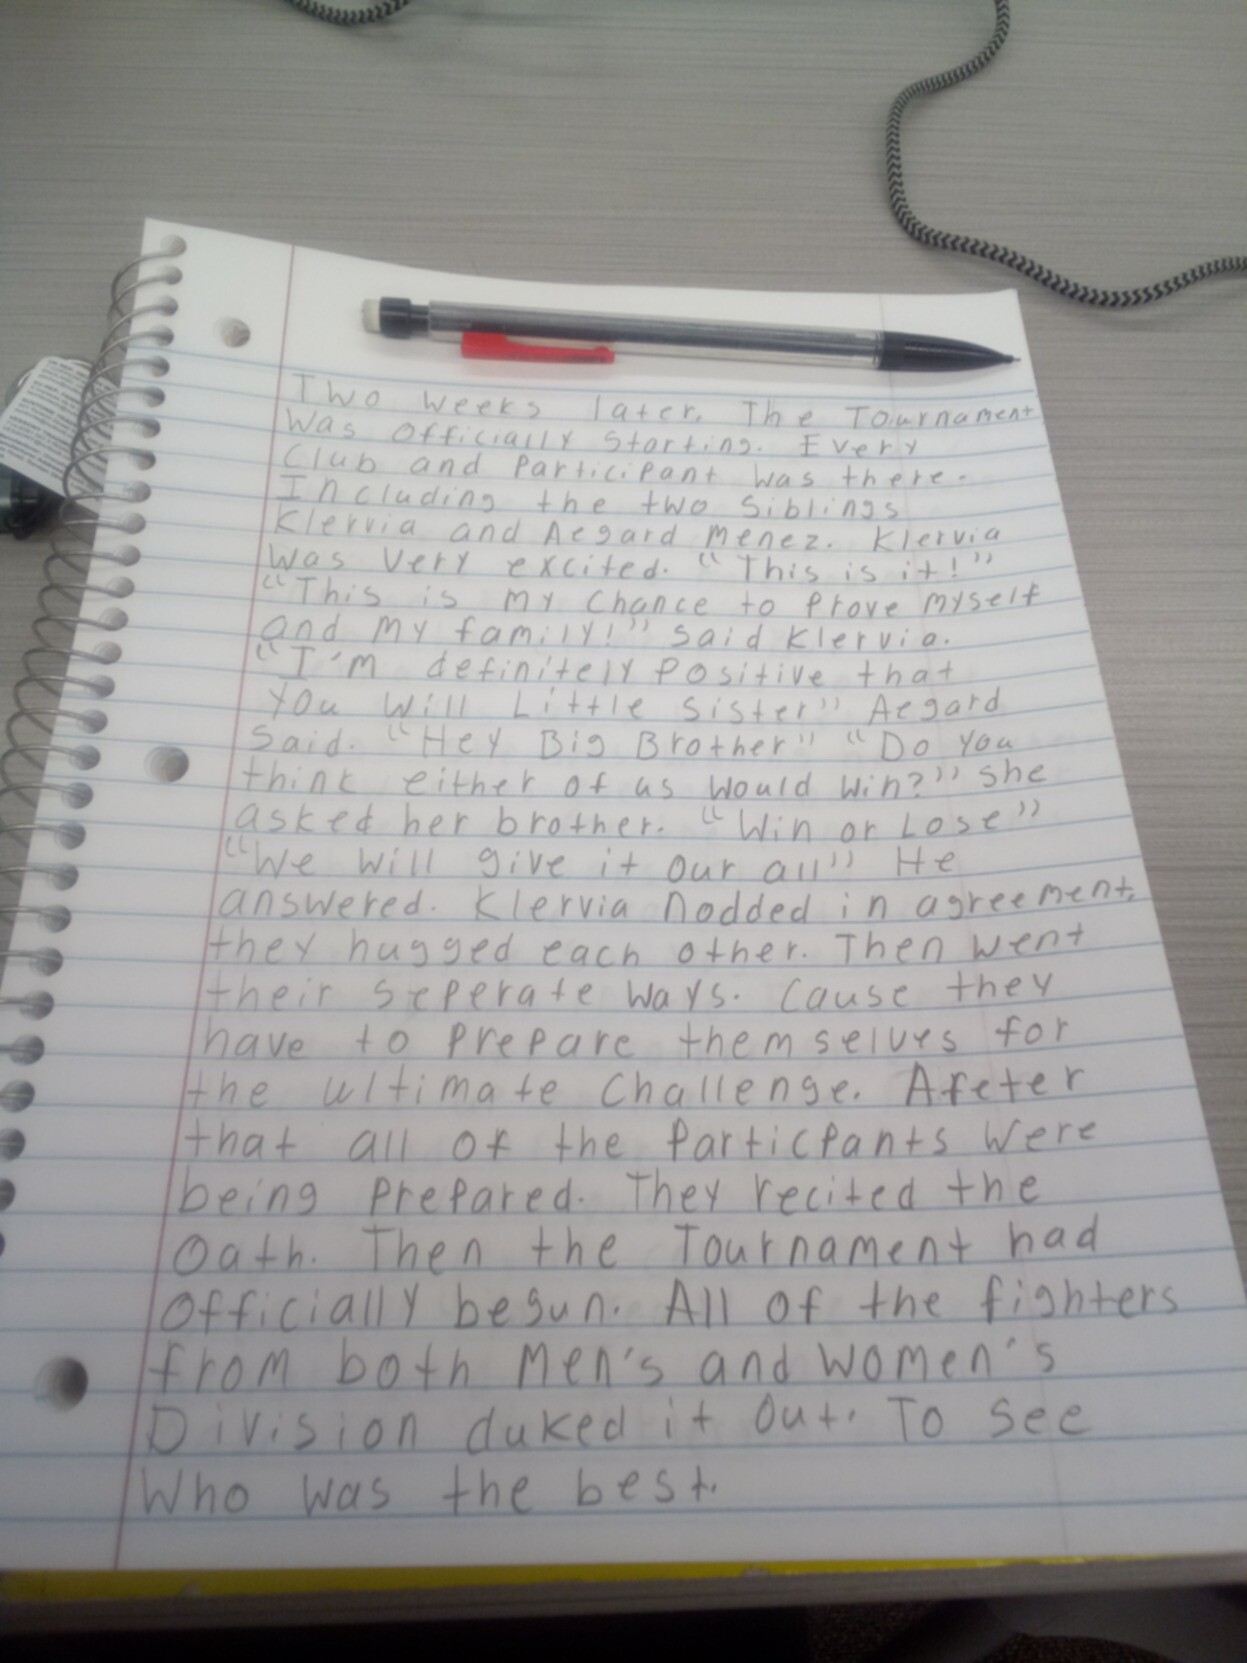 Two weeks later. The Tournament
was officially starting. Every
Club and Participant was there.
Including the two siblings
Klervia and Aegard Menez. Klervia
was very excited. "This is it!"
"This is my chance to prove myself
and my family!" said Klervia.
"I'm definitely positive that
you will Little sister" Aegard
said. "Hey Big Brother" "Do you
think either of us would win?" she
asked her brother. "Win or Lose"
"We will give it our all" He
answered. Klervia nodded in agreement,
they hugged each other. Then went
their seperate ways. Cause they
have to prepare themselves for
the ultimate Challenge. Afeter
that all of the Particpants were
being prepared. They recited the
Oath. Then the Tournament had
Officially begun. All of the fighters
from both Men's and Women's
Division duked it out. To see
Who was the best.